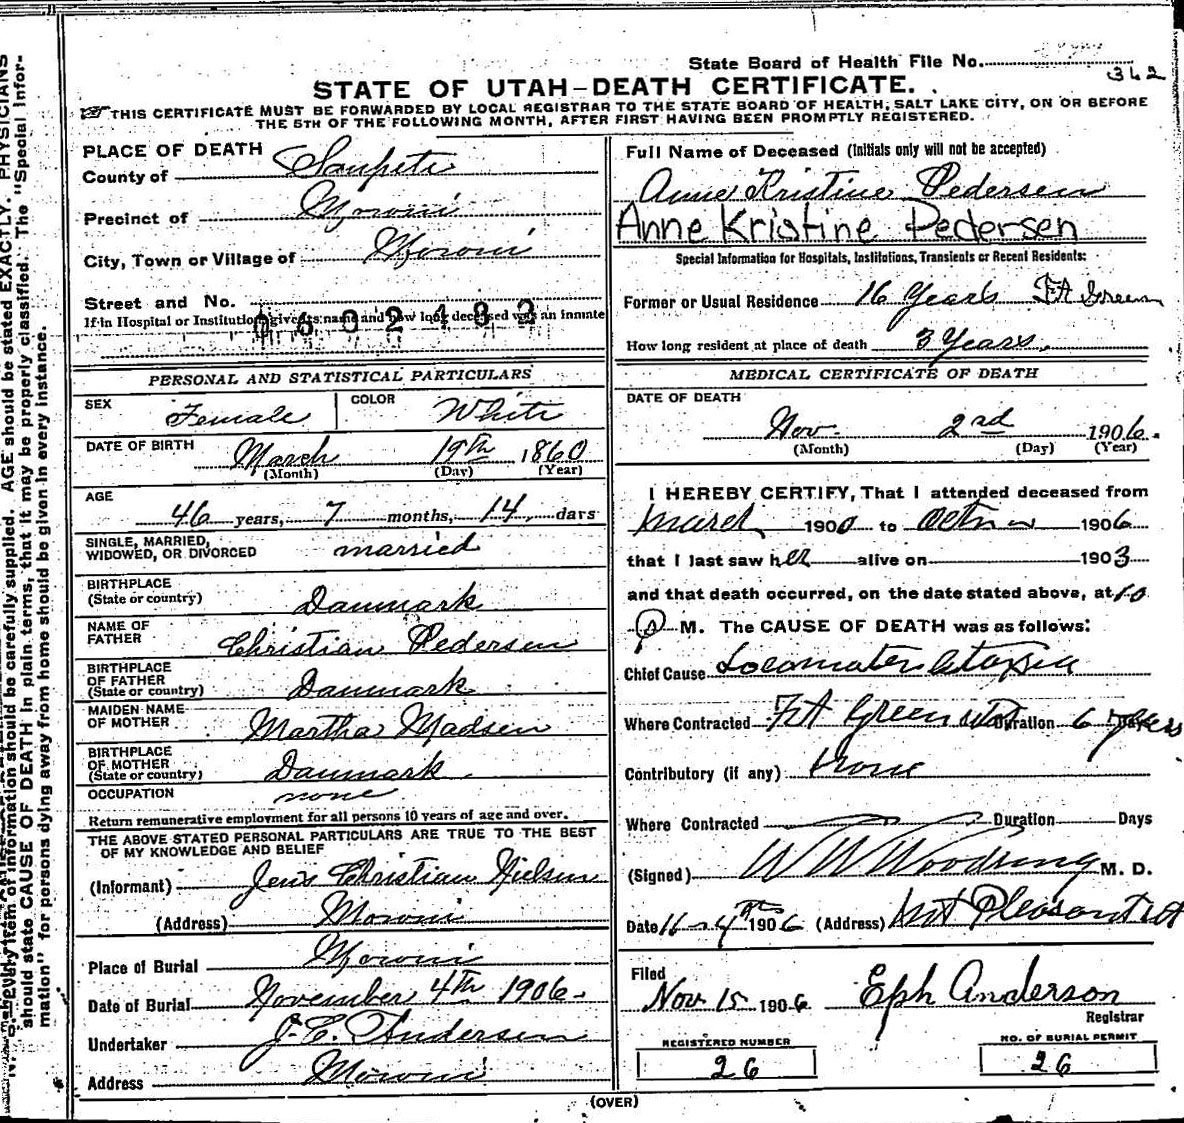 State Board of Health File No.
362
STATE OF UTAH-DEATH CERTIFICATE.
THIS CERTIFICATE MUST BE FORWARDED BY LOCAL REGISTRAR TO THE STATE BOARD OF HEALTH, SALT LAKE CITY, ON OR BEFORE
THE 5TH OF THE FOLLOWING MONTH, AFTER FIRST HAVING BEEN PROMPTLY REGISTERED.
PLACE OF DEATH
County of Sanpete
Precinct of Moroni
City, Town or Village of Moroni
Street and No.
If in Hospital or Institution give its name and how long deceased was an inmate
0602432
PERSONAL AND STATISTICAL PARTICULARS
SEX Female COLOR White
DATE OF BIRTH March 19th 1860
(Month) (Day) (Year)
AGE
46 years, 7 months, 14 days
SINGLE, MARRIED,
WIDOWED, OR DIVORCED married
BIRTHPLACE
(State or country) Danmark
NAME OF
FATHER Christian Pedersen
BIRTHPLACE
OF FATHER
(State or country) Danmark
MAIDEN NAME
OF MOTHER Martha Madsen
BIRTHPLACE
OF MOTHER
(State or country) Danmark
OCCUPATION none
Return remunerative employment for all persons 10 years of age and over.
THE ABOVE STATED PERSONAL PARTICULARS ARE TRUE TO THE BEST
OF MY KNOWLEDGE AND BELIEF
(Informant) Jens Christian Nielsen
(Address) Moroni
Place of Burial Moroni
Date of Burial November 4th 1906.
Undertaker J. C. Andersen
Address Moroni
Full Name of Deceased (Initials only will not be accepted)
Anne Kristine Pedersen
Anne Kristine Pedersen
Special Information for Hospitals, Institutions, Transients or Recent Residents:
Former or Usual Residence 16 Years Ft Green
How long resident at place of death 3 Years.
MEDICAL CERTIFICATE OF DEATH
DATE OF DEATH
Nov. 2rd 1906.
(Month) (Day) (Year)
I HEREBY CERTIFY, That I attended deceased from
March 1900 to 1906
that I last saw her alive on 1903
and that death occurred, on the date stated above, at 10
P M. The CAUSE OF DEATH was as follows:
Chief Cause Locomater Ataxia
Where Contracted Ft Green Utah Duration 6 years Days
Contributory (if any) None
Where Contracted Duration Days
(Signed) W W Woodring M. D.
Date 11-4th 1906 (Address) Mt Pleasant Ut
Filed
Nov 15 1906 Eph Anderson
Registrar
REGISTERED NUMBER
26
NO. OF BURIAL PERMIT
26
(OVER)
Every item of information should be carefully supplied. AGE should be stated EXACTLY. PHYSICIANS
should state CAUSE OF DEATH in plain terms, that it may be properly classified. The "Special Infor-
mation" for persons dying away from home should be given in every instance.